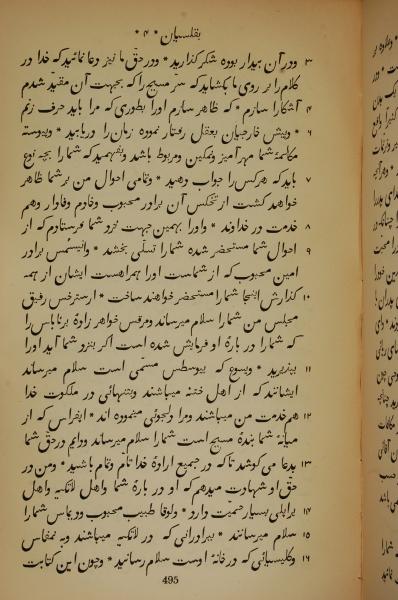 بقلسیان * ۴ *
۳ ودر آن بیدار بوده شکر گذارید * ودر حقّ ما نیز دعا نمائید که خدا در
کلام را بر روی ما بکشاید که سرّ مسیح را که بجهت آن مقیّد شدم
۴ آشکارا سازم * که ظاهر سازم اورا بطوری که مرا باید حرف زنم
۶ وپیش خارجیان بعقل رفتار نموده زمان را دریابید * وپیوسته
مکالمهٔ شما مهر آمیز ونمکین ومربوط باشد وبفهمید که شما را بچه نوع
۷ باید که هر کس را جواب دهید * وتمامی احوال من بر شما ظاهر
خواهد گشت از تخکس آن برادر محبوب وخادم وفادار وهم
۸ خدمت در خداوند * واورا بهمین جهت نزد شما فرستادم که از
۹ احوال شما مستحضر شده شما را تسلّی بخشد * وانیسمس برادر
امین محبوب که از شماست اورا همراهست ایشان از همه
۱۰ گذارش اینجا شما را مستحضر خواهند ساخت * ارسترخس رفیق
محبس من شما را سلام میرساند ومرقس خواهر زادهٔ برناباس را
که شما را در بارهٔ او فرمایش شده است اگر بنزد شما آید اورا
۱۱ بپذیرید * ویسوع که بیوسطس مسمّی است سلام میرساند
ایشانند که از اهل ختنه میباشند وبتنهائی در ملکوت خدا
۱۲ هم خدمت من میباشند ومرا دلجوئی مینموده اند * اپفراس که از
میانهٔ شما بندهٔ مسیح است شما را سلام میرساند ودایم در حقّ شما
۱۳ بدعا می کوشد تا که در جمیع ارادهٔ خدا تامّ وتمام باشید * ومن در
حقّ او شهادت میدهم که او در بارهٔ شما واهل لاذکیه واهل
۱۴ یراپلی بسیار حمیت دارد * ولوقا طبیب محبوب ودیماس شما را
۱۵ سلام میرسانند * برادرانی که در لاذکیه میباشند وبه نمفاس
۱۶ وکلیسیائی که در خانهٔ اوست سلام رسانید * وچون این کتابت
495